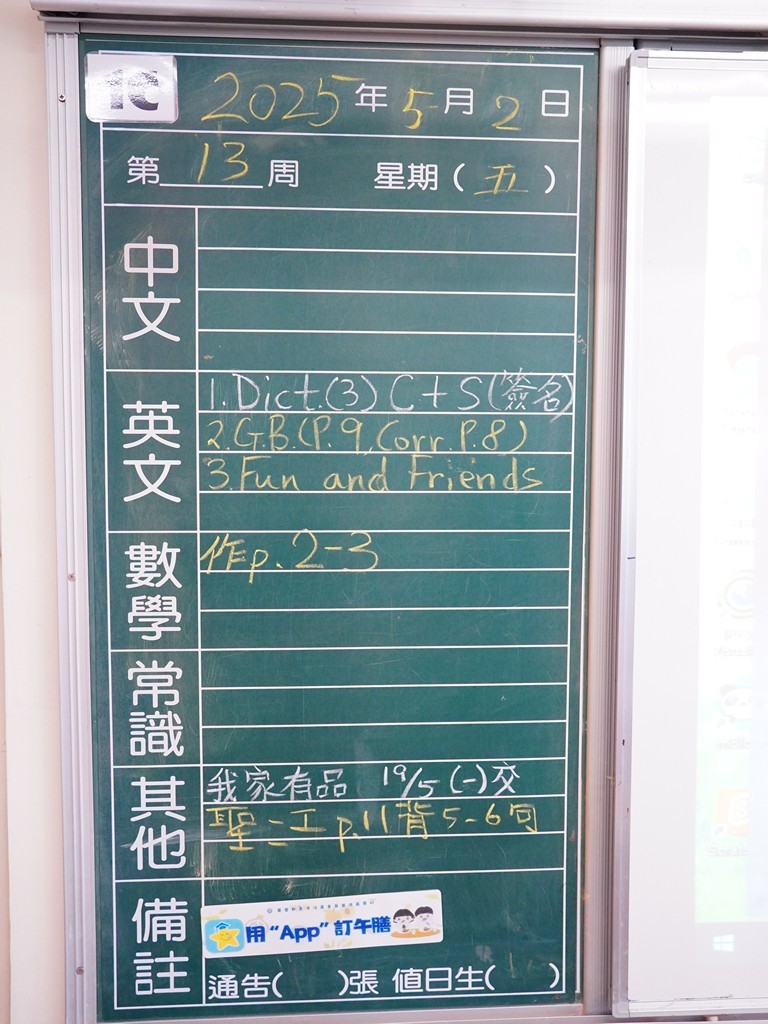 1C
2025年5月2日
第13周 星期(五)
中文
英文
1. Dict.(3) C+S(簽名)
2. G.B.(P.9, Corr. P.8)
3. Fun and Friends
數學
作p.2-3
常識
其他
我家有品 19/5(一)交
聖二工 p.11背5-6句
備註
用“App”訂午膳
通告( )張 值日生( )